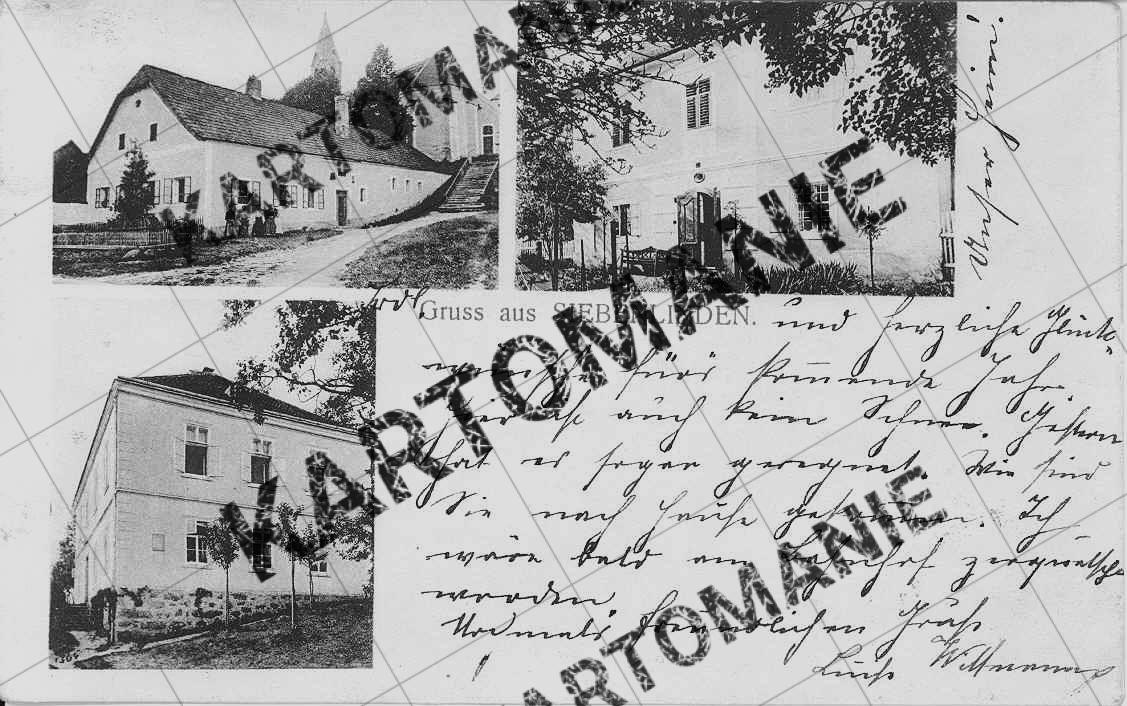 Unser Heim!
Gruss aus SIEBENLINDEN.
und herzliche Glück-
wünsche fürs kommende Jahr.
Hier ist auch kein Schnee. Gestern
hat es sogar geregnet. Wie sind
Sie nach Hause gekommen. Ich
wäre bald am Bahnhof zerquetscht
worden.
Nochmals freundlichen Gruß
KARTOMANIE
KARTOMANIE
KARTOMANIE